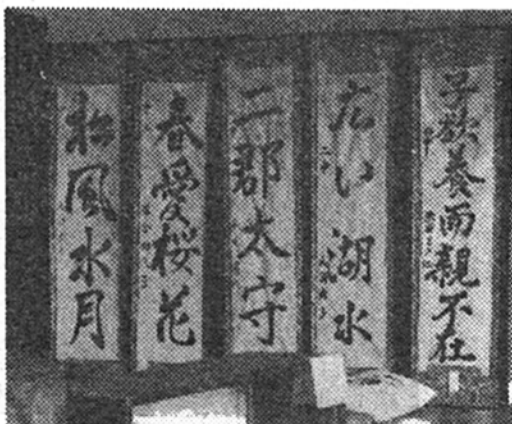 子欲養而親不在
広い湖水
二郡太守
春愛桜花
松風水月